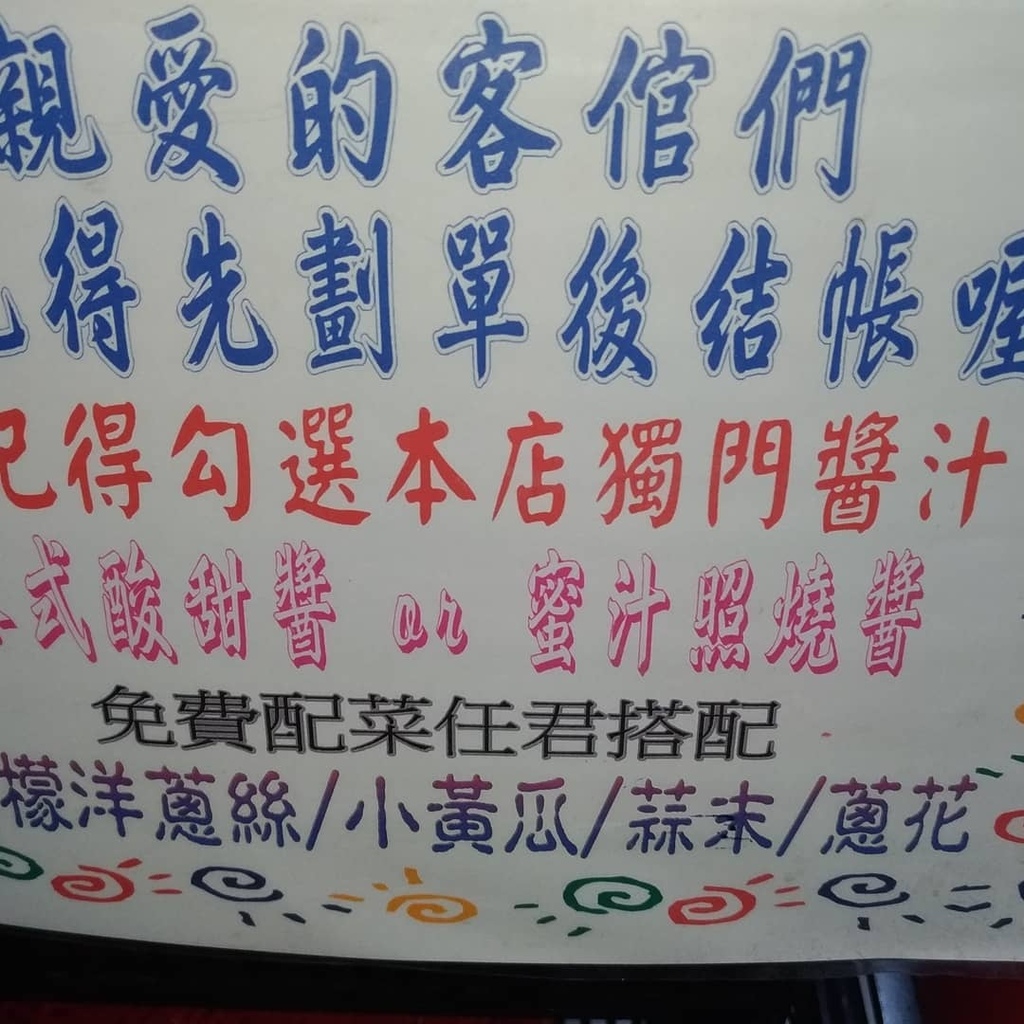 親愛的客倌們
記得先劃單後結帳喔
記得勾選本店獨門醬汁
式酸甜醬 or 蜜汁照燒醬
免費配菜任君搭配
檬洋蔥絲/小黃瓜/蒜末/蔥花